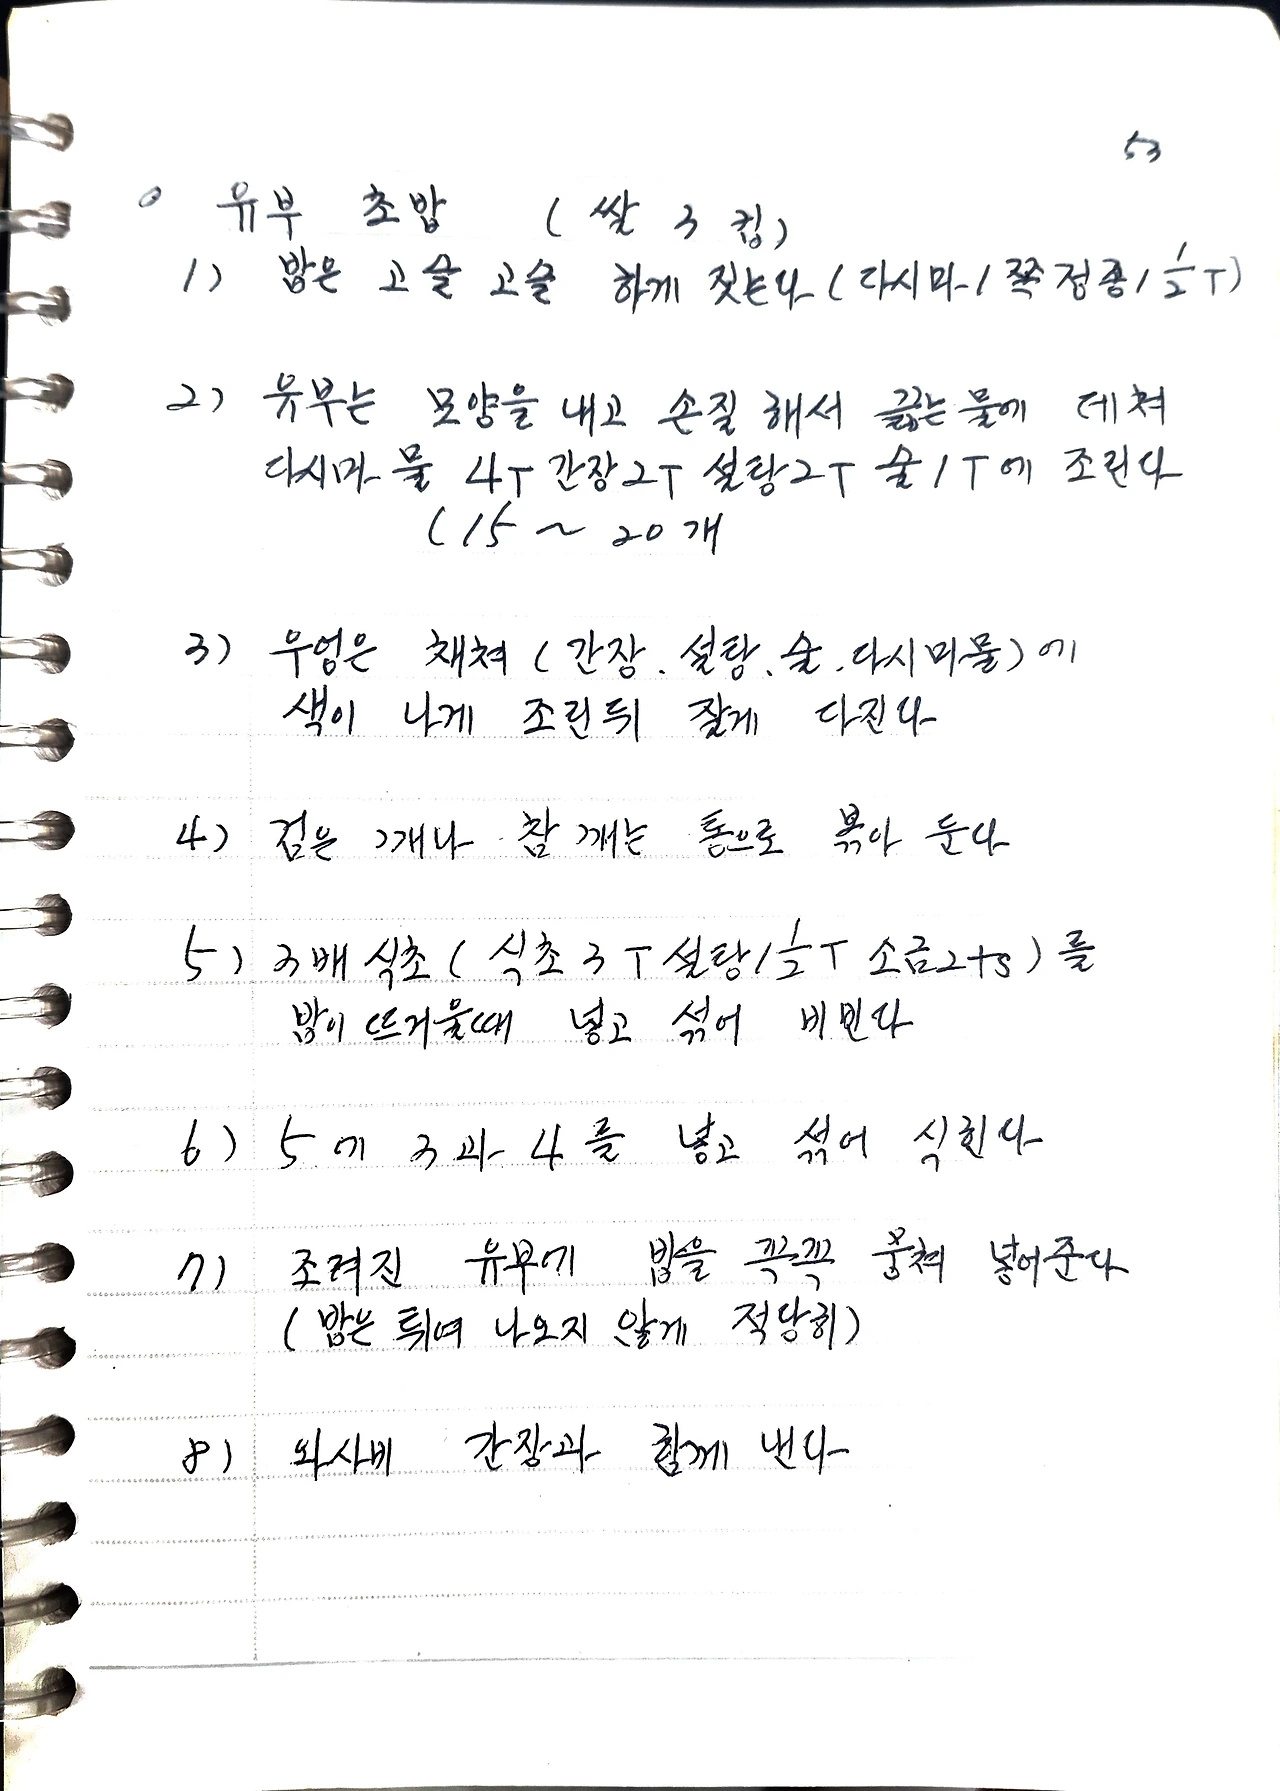 53
유부 초밥 ( 쌀 3 컵)
1) 밥은 고슬 고슬 하게 짓는다 (다시마 1쪽 정종 1 1/2 T)
2) 유부는 모양을 내고 손질 해서 끓는 물에 데쳐
다시마 물 4T 간장 2T 설탕 2T 술 1T에 조린다
(15 ~ 20개
3) 우엉은 채쳐 (간장. 설탕. 술. 다시마물)에
색이 나게 조린뒤 잘게 다진다
4) 검은 깨나 참깨는 통으로 볶아 둔다
5) 3배 식초 ( 식초 3T 설탕 1 1/2 T 소금 2ts)를
밥이 뜨거울때 넣고 섞어 비빈다
6) 5에 3과 4를 넣고 섞어 식힌다
7) 조려진 유부에 밥을 꼭꼭 뭉쳐 넣어준다
(밥은 튀여 나오지 않게 적당히)
8) 와사비 간장과 함께 낸다